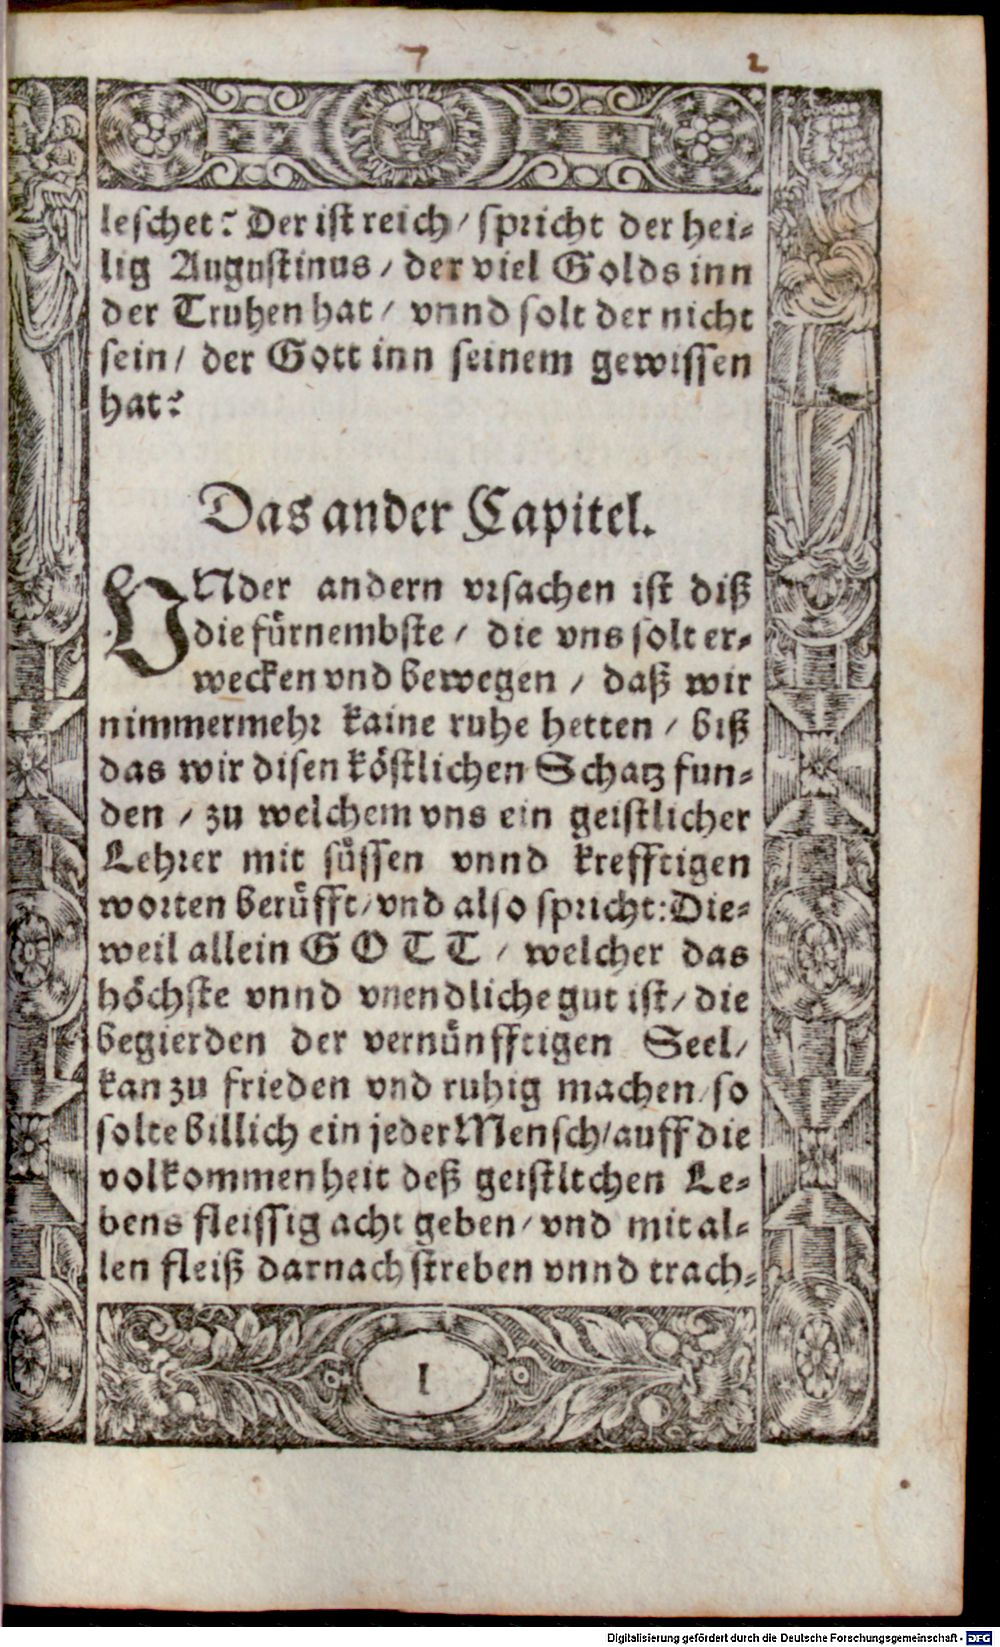 7 2
leschet? Der ist reich / spricht der hei-
lig Augustinus / der viel Golds inn
der Truhen hat / vnnd solt der nicht
sein / der Gott inn seinem gewissen
hat?
Das ander Capitel.
VNder andern vrsachen ist diß
die fürnembste / die vns solt er-
wecken vnd bewegen / daß wir
nimmermehr kaine ruhe hetten / biß
das wir disen köstlichen Schatz fun-
den / zu welchem vns ein geistlicher
Lehrer mit süssen vnnd krefftigen
worten berüfft / vnd also spricht: Die-
weil allein GOTT / welcher das
höchste vnnd vnendliche gut ist / die
begierden der vernünfftigen Seel /
kan zu frieden vnd ruhig machen / so
solte billich ein jeder Mensch / auff die
volkommenheit deß geistlichen Le-
bens fleissig acht geben / vnd mit al-
len fleiß darnach streben vnnd trach-
I
Digitalisierung gefördert durch die Deutsche Forschungsgemeinschaft - DFG